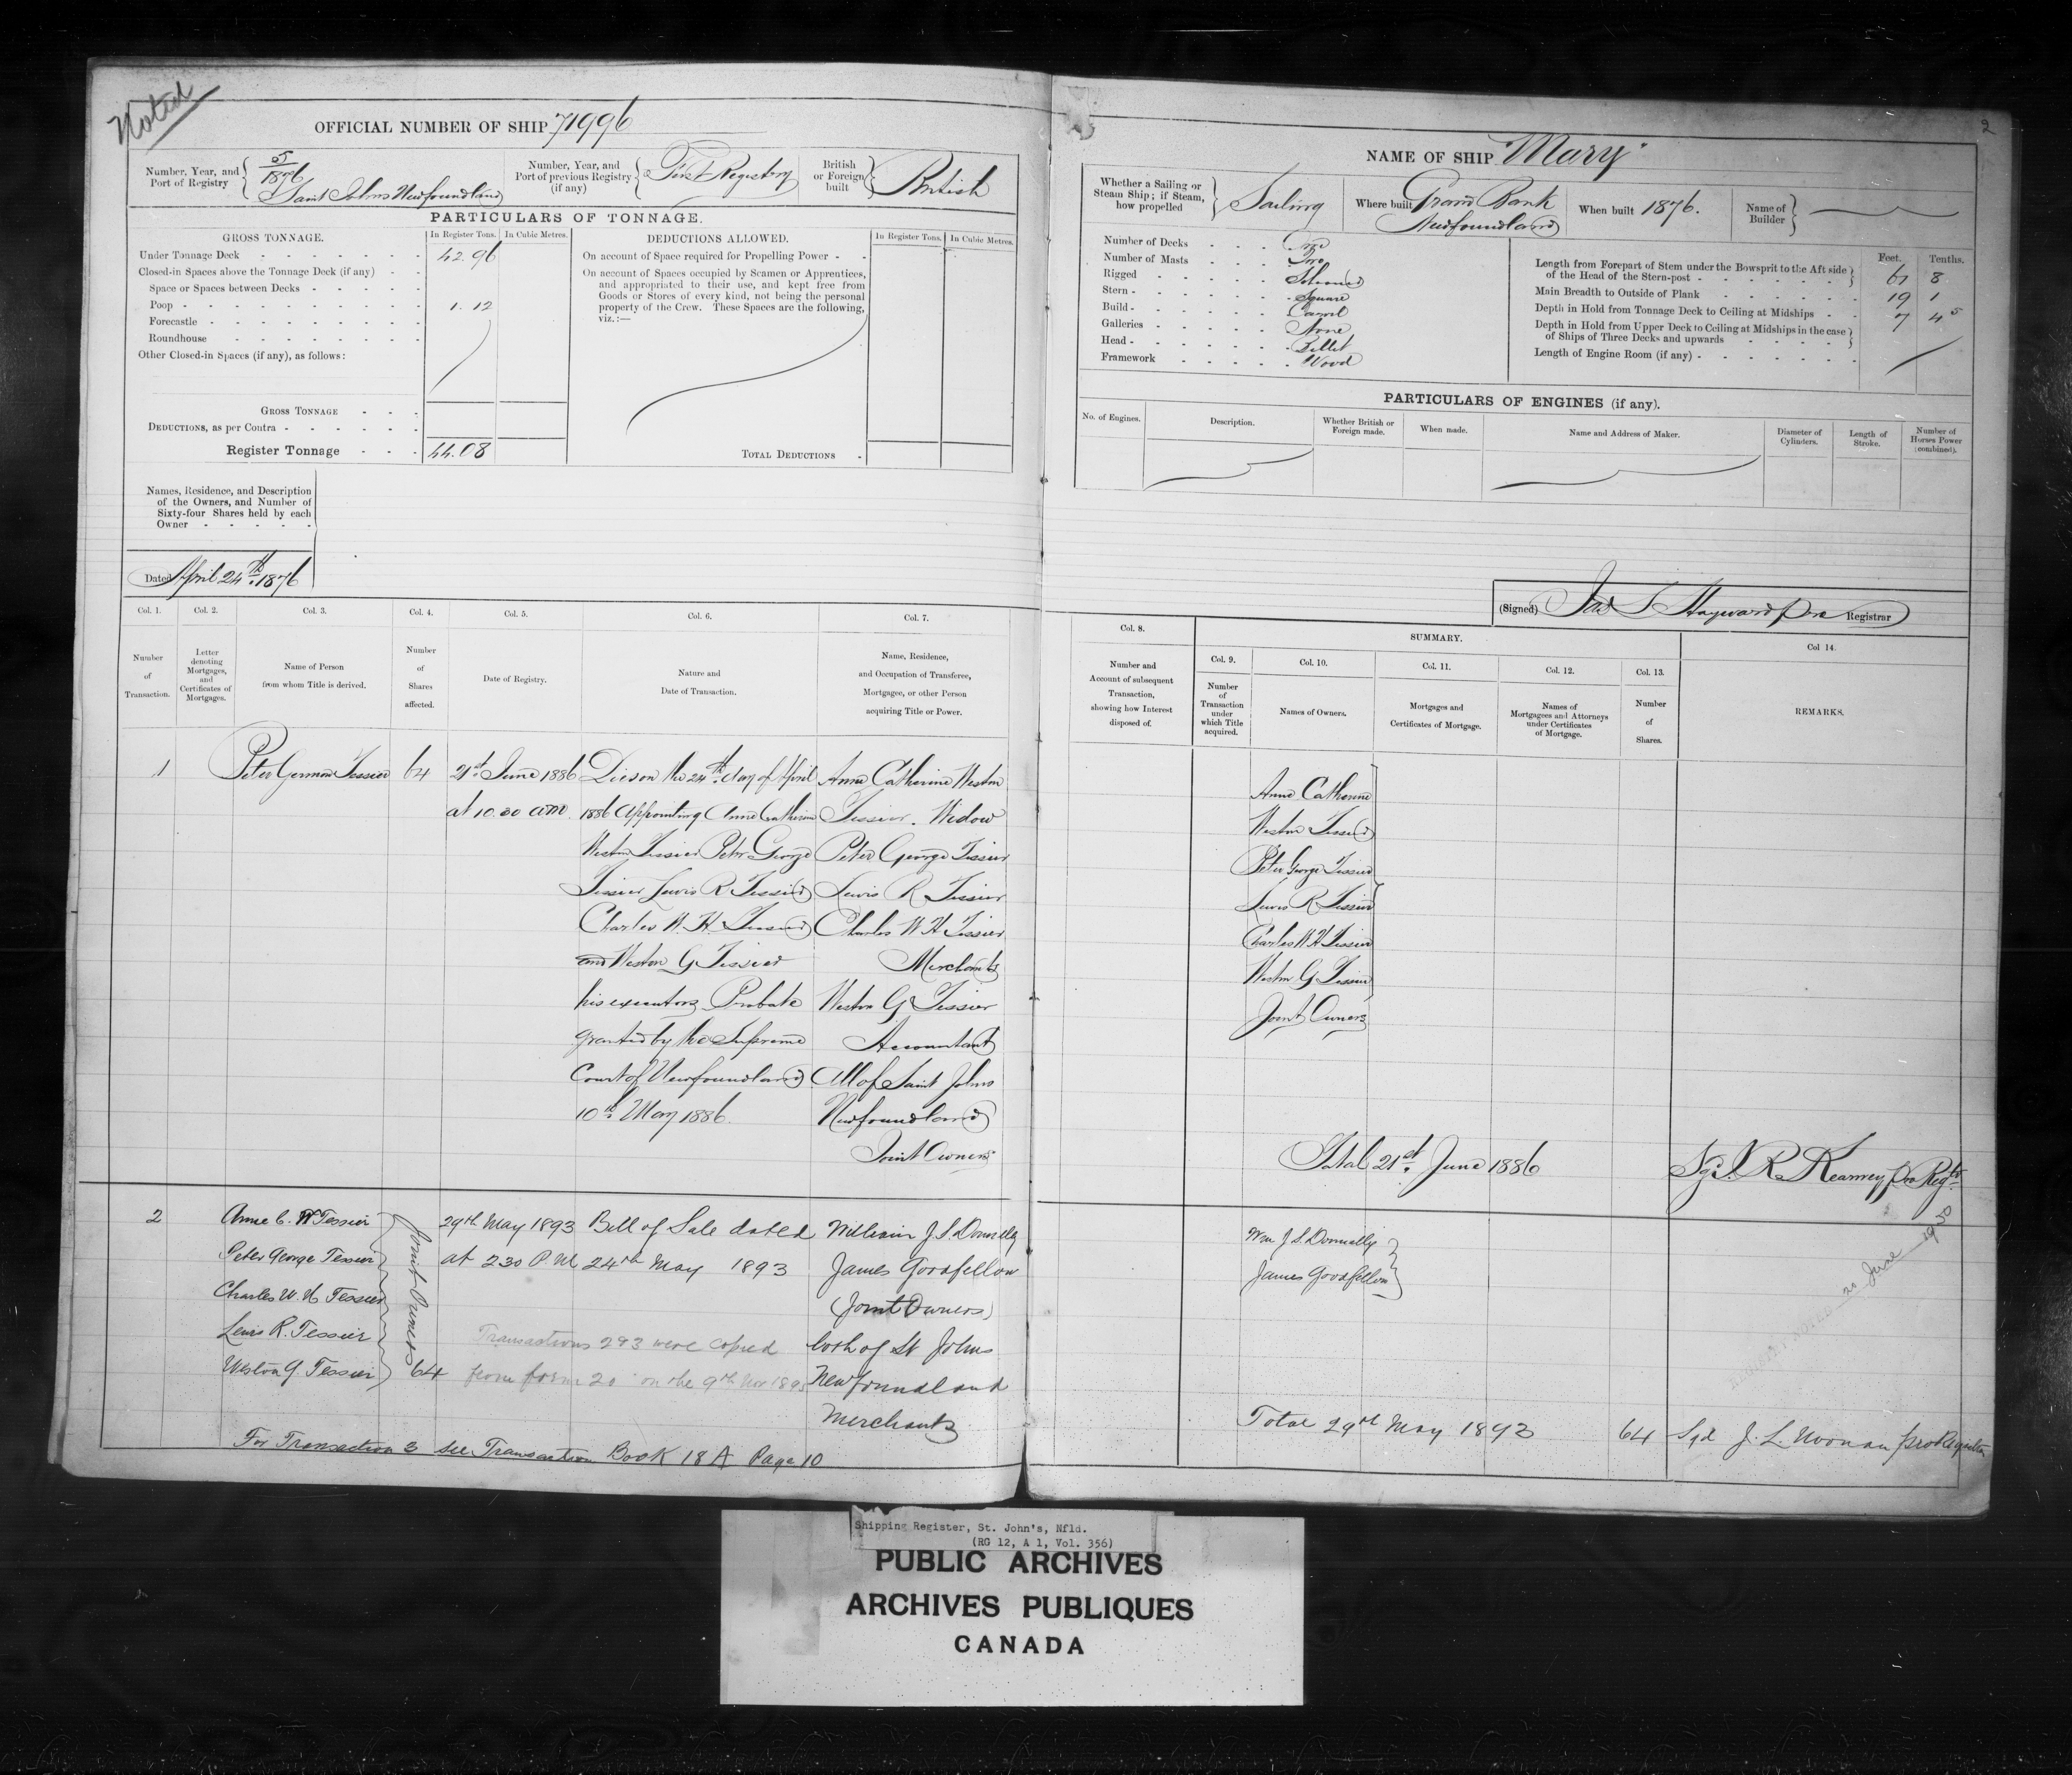 Noted
OFFICIAL NUMBER OF SHIP 71996
Number, Year, and Port of Registry
5/1876
Saint Johns Newfoundland
Number, Year, and Port of previous Registry (if any)
First Registry
British or Foreign built
British
PARTICULARS OF TONNAGE.
GROSS TONNAGE. In Register Tons. In Cubic Metres. DEDUCTIONS ALLOWED. In Register Tons. In Cubic Metres.
Under Tonnage Deck 42.96
Closed-in Spaces above the Tonnage Deck (if any)
Space or Spaces between Decks
Poop 1.12
Forecastle
Roundhouse
Other Closed-in Spaces (if any), as follows:
On account of Space required for Propelling Power
On account of Spaces occupied by Seamen or Apprentices,
and appropriated to their use, and kept free from
Goods or Stores of every kind, not being the personal
property of the Crew. These Spaces are the following,
viz.:—
GROSS TONNAGE
DEDUCTIONS, as per Contra
Register Tonnage 44.08
TOTAL DEDUCTIONS
Names, Residence, and Description
of the Owners, and Number of
Sixty-four Shares held by each
Owner
Dated April 24th 1876
Col. 1. Col. 2. Col. 3. Col. 4. Col. 5. Col. 6. Col. 7.
Number of Transaction.
Letter denoting Mortgages, and Certificates of Mortgages.
Name of Person from whom Title is derived.
Number of Shares affected.
Date of Registry.
Nature and Date of Transaction.
Name, Residence, and Occupation of Transferee, Mortgagee, or other Person acquiring Title or Power.
1 Peter German Tessier 64 21st June 1886 Died on the 24th day of April Anne Catherine Weston
at 10.30 am. 1886 Appointing Anne Catherine Tessier. Widow
Weston Tessier Peter George Peter George Tessier
Tessier Lewis R Tessier Lewis R Tessier
Charles W. H. Tessier Charles W H Tessier
and Weston G Tessier Merchants
his executors Probate Weston G Tessier
granted by the Supreme Accountant
Court of Newfoundland All of Saint Johns
10th May 1886. Newfoundland
Joint Owners
2 Anne C. W Tessier 29th May 1893 Bill of Sale dated William J. S. Donnelly
Peter George Tessier at 2 30 P.M. 24th May 1893 James Goodfellow
Charles W. H Tessier (Joint Owners)
Lewis R. Tessier Transactions 2&3 were copied both of St Johns
Weston G. Tessier Joint Owners 64 from form 20 on the 9th Nov 1895 Newfoundland
Merchants
For Transaction 3 see Transaction Book 18 A Page 10
2
NAME OF SHIP "Mary"
Whether a Sailing or Steam Ship; if Steam, how propelled
Sailing
Where built Grand Bank
Newfoundland
When built 1876.
Name of Builder
Number of Decks One
Number of Masts Two
Rigged Schooner
Stern Square
Build Carvel
Galleries None
Head Billet
Framework Wood
Feet. Tenths.
Length from Forepart of Stem under the Bowsprit to the Aft side
of the Head of the Stern-post 61 8
Main Breadth to Outside of Plank 19 1
Depth in Hold from Tonnage Deck to Ceiling at Midships 7 45
Depth in Hold from Upper Deck to Ceiling at Midships in the case
of Ships of Three Decks and upwards
Length of Engine Room (if any)
PARTICULARS OF ENGINES (if any).
No. of Engines. Description. Whether British or Foreign made. When made. Name and Address of Maker. Diameter of Cylinders. Length of Stroke. Number of Horses Power (combined).
(Signed) Hayward pro Registrar
Col. 8. SUMMARY. Col 14.
Col. 9. Col. 10. Col. 11. Col. 12. Col. 13.
Number and Account of subsequent Transaction, showing how Interest disposed of.
Number of Transaction under which Title acquired.
Names of Owners.
Mortgages and Certificates of Mortgage.
Names of Mortgagees and Attorneys under Certificates of Mortgage.
Number of Shares.
REMARKS.
Anne Catherine
Weston Tessier
Peter George Tessier
Lewis R Tessier
Charles W H Tessier
Weston G Tessier
Joint Owners
Total 21st June 1886 Sgd. R Kearney pro Regtr
Wm J. S. Donnelly
James Goodfellow
21 June 1930
Total 29th May 1893 64 Sgd J. L. Noonan pro Registrar
Shipping Register, St. John's, Nfld.
(RG 12, A 1, Vol. 356)
PUBLIC ARCHIVES
ARCHIVES PUBLIQUES
CANADA